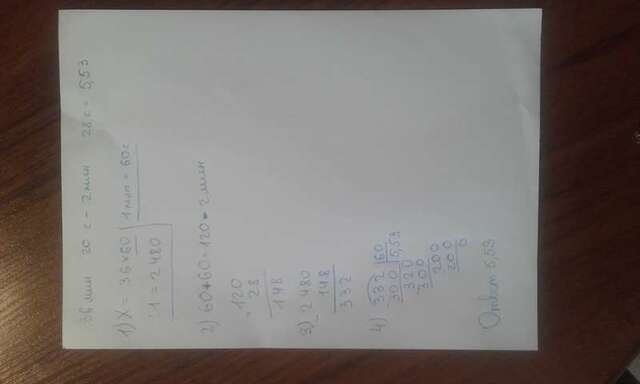 36 мин 20 с - 2 мин 28 с = 5,53
1) X = 36×60 | 1 мин = 60 с
:1 = 2480
2) 60+60=120=2 мин
120
28
148
3) 2480
148
332
4) 332 |60
300 |5,53
320
300
200
200
0
Ответ 5,53